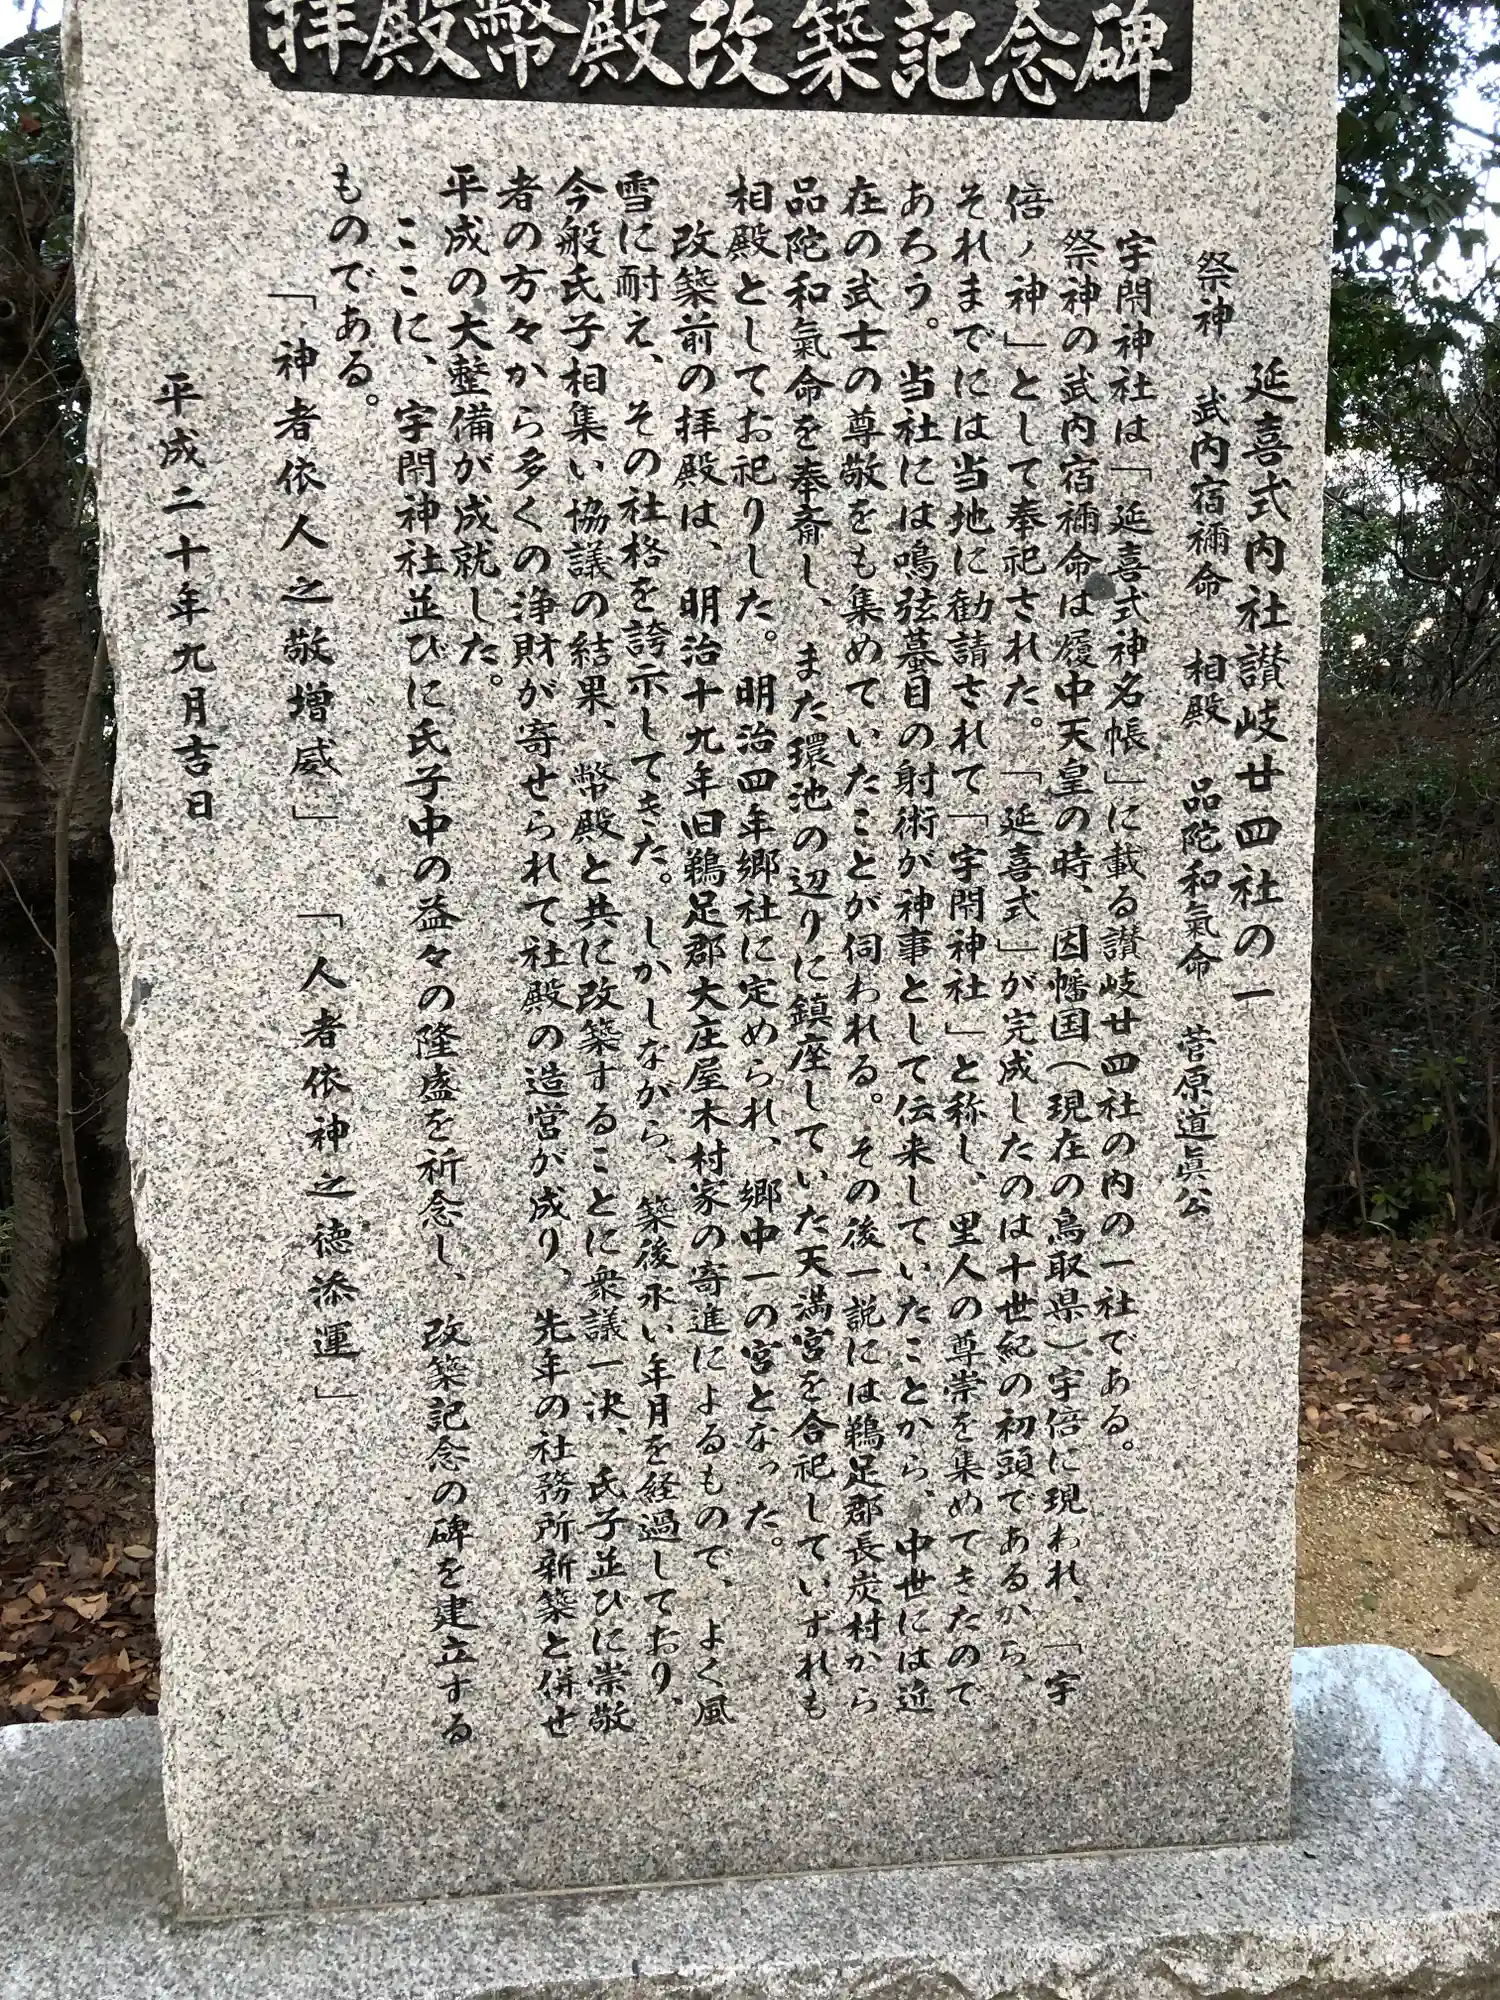 拝殿幣殿改築記念碑
延喜式内社讃岐廿四社の一
祭神 武内宿禰命 相殿 品陀和氣命 菅原道眞公
宇閇神社は「延喜式神名帳」に載る讃岐廿四社の内の一社である。
祭神の武内宿禰命は履中天皇の時、因幡国(現在の鳥取県)宇倍に現われ、「宇
倍ノ神」として奉祀された。「延喜式」が完成したのは十世紀の初頭であるから、
それまでには当地に勧請されて「宇閇神社」と称し、里人の尊崇を集めてきたので
あろう。当社には鳴弦蟇目の射術が神事として伝来していたことから、中世には近
在の武士の尊敬をも集めていたことが伺われる。その後一説には鵜足郡長炭村から
品陀和氣命を奉斎し、また環池の辺りに鎮座していた天満宮を合祀していずれも
相殿としてお祀りした。明治四年郷社に定められ、郷中一の宮となった。
改築前の拝殿は、明治十九年旧鵜足郡大庄屋木村家の寄進によるもので、よく風
雪に耐え、その社格を誇示してきた。しかしながら、築後永い年月を経過しており、
今般氏子相集い協議の結果、幣殿と共に改築することに衆議一決、氏子並びに崇敬
者の方々から多くの浄財が寄せられて社殿の造営が成り、先年の社務所新築と併せ
平成の大整備が成就した。
ここに、宇閇神社並びに氏子中の益々の隆盛を祈念し、改築記念の碑を建立する
ものである。
「神者依人之敬増威」 「人者依神之徳添運」
平成二十年九月吉日